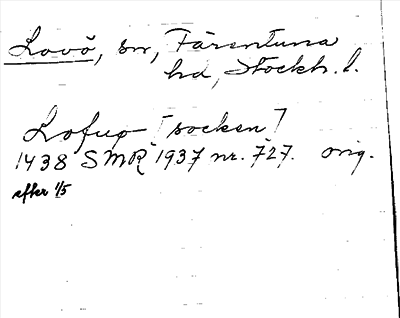 Lovö, sn, Färentuna
hd, Stockh. l.
Lofuo [socken]
1438 SMR 1937 nr. 727. orig.
efter 1/5